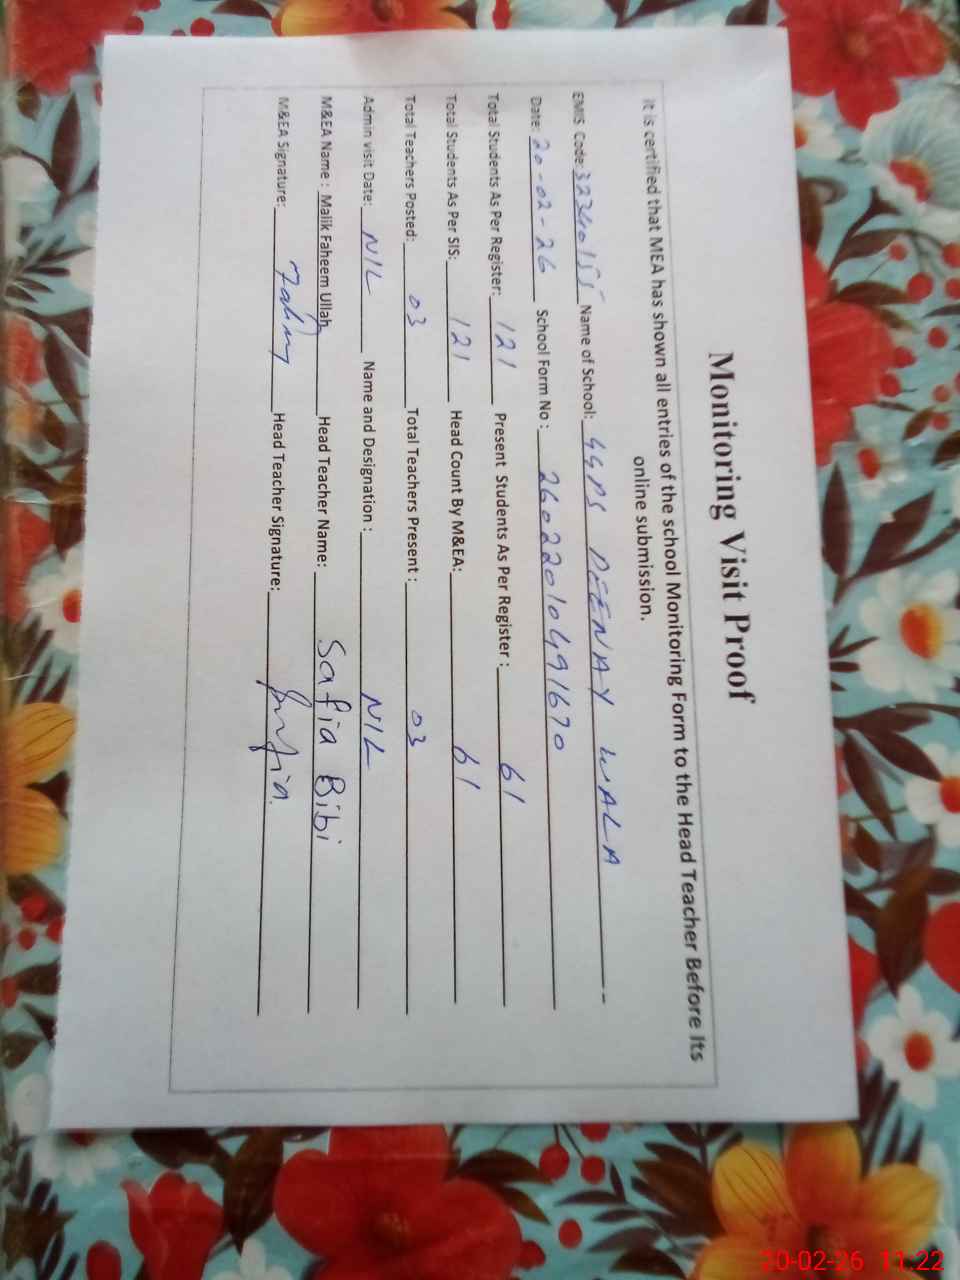 Monitoring Visit Proof
It is certified that MEA has shown all entries of the school Monitoring Form to the Head Teacher Before Its
online submission.
EMIS Code: 32340155 Name of School: GGPS DEENAY WALA
Date: 20-02-26 School Form No: 26022010491670
Total Students As Per Register: 121 Present Students As Per Register: 61
Total Students As Per SIS: 121 Head Count By M&EA: 61
Total Teachers Posted: 03 Total Teachers Present: 03
Admin visit Date: NIL Name and Designation: NIL
M&EA Name: Malik Faheem Ullah Head Teacher Name: Safia Bibi
M&EA Signature: Fahim Head Teacher Signature: Safia
20-02-26 11:22